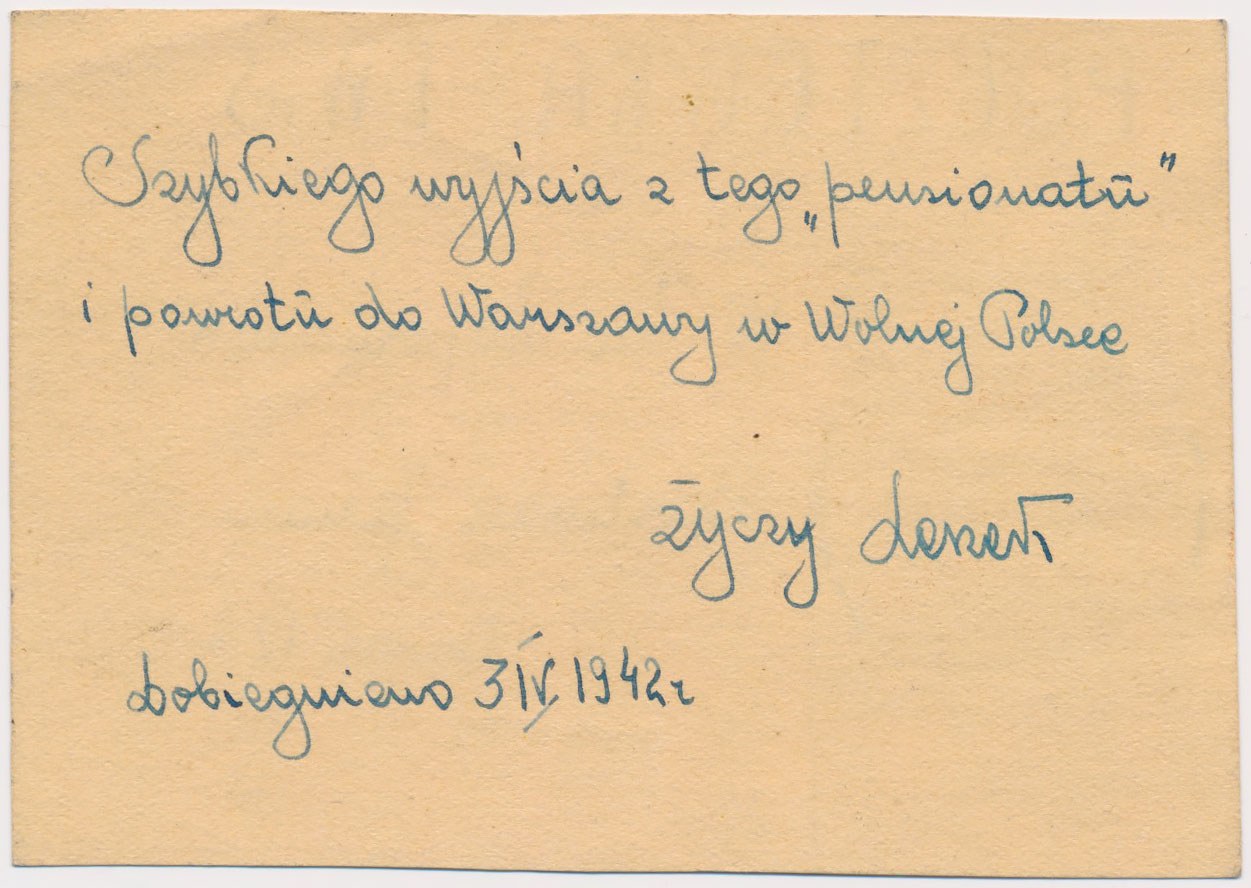 Szybkiego wyjścia z tego „pensionatū"
i powrotū do Warszawy w Wolnej Polsce
życzy Leszek
Dobiegniewo 3 IV 1942 r